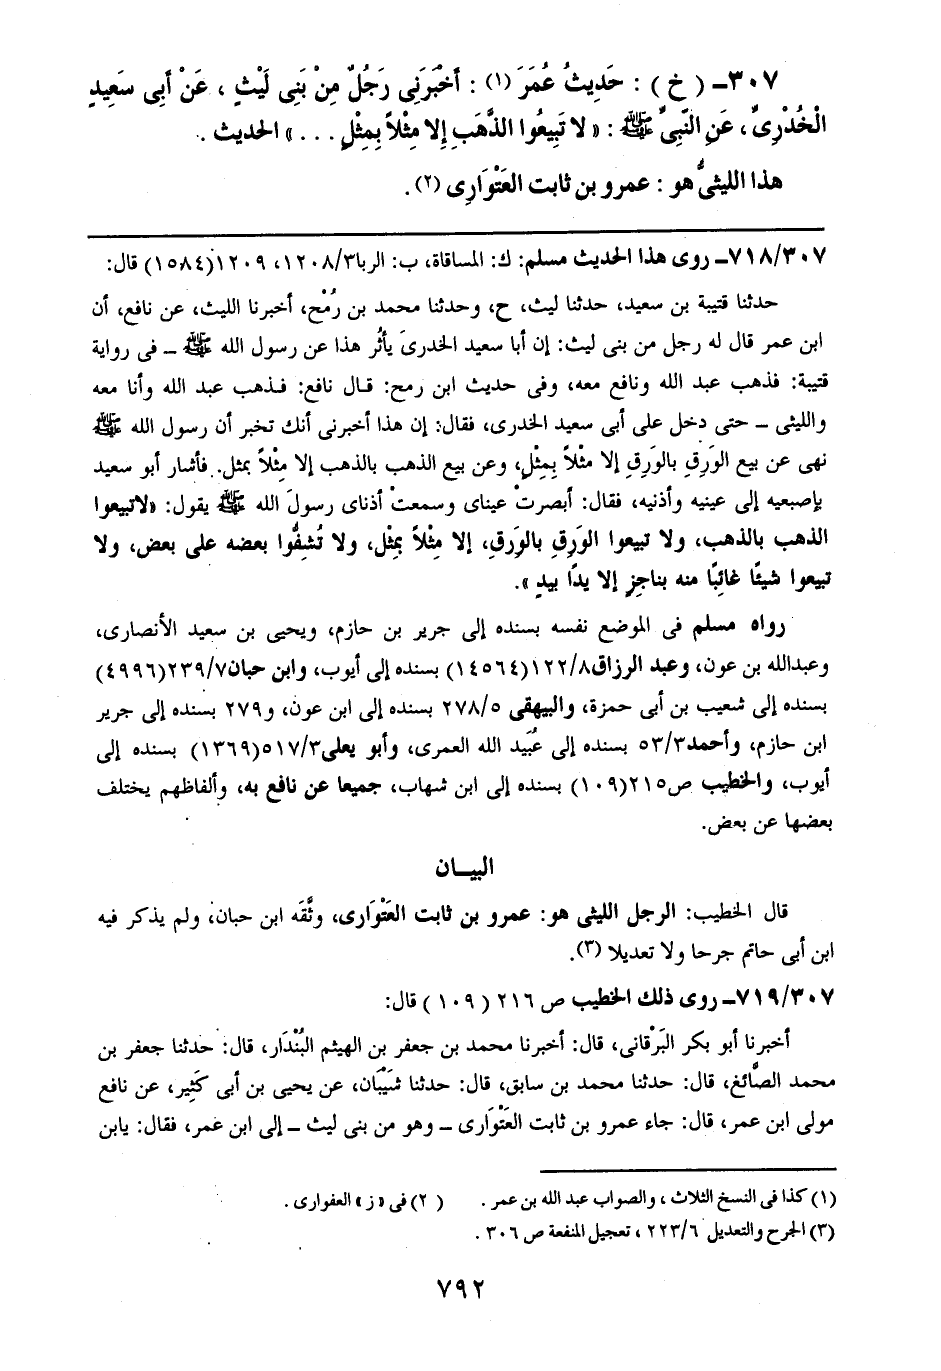 ٣٠٧ــ ( خ ) : حَدِيثُ عُمَرَ (١) : أَخْبَرَنِى رَجُلٌ مِنْ بَنِى لَيْثٍ ، عَنْ أَبِى سَعِيدٍ
الْخُدْرِىِّ ، عَنِ النَّبِىِّ ﷺ : « لا تَبِيعُوا الذَّهَبِ إلا مِثْلاً بِمِثْلٍ . . . » الحديث .
هذا الليثىُّ هو : عمرو بن ثابت العَتْوَارِى (٢) .
٧١٨/٣٠٧ــ روى هذا الحديث مسلم: ك: المساقاة، ب: الربا١٢٠٨/٣، ١٢٠٩(١٥٨٤) قال:
حدثنا قتيبة بن سعيد، حدثنا ليث، ح، وحدثنا محمد بن رُمْح، أخبرنا الليث، عن نافع، أن
ابن عمر قال له رجل من بنى ليث: إن أبا سعيد الخدرىَ يأثُر هذا عن رسول الله ﷺ ــ فى رواية
قتيبة: فذهب عبد الله ونافع معه، وفى حديث ابن رمح: قال نافع: فذهب عبد الله وأنا معه
والليثى ــ حتى دخل على أبى سعيد الخدرى، فقال: إن هذا أخبرنى أنك تخبر أن رسول الله ﷺ
نهى عن بيع الوَرِق بالوَرِقِ إلا مثْلاً بِمِثْلٍ، وعن بيع الذهب بالذهب إلا مِثْلاً بمثل. فأشار أبو سعيد
بإصبعيه إلى عينيه وأذنيه، فقال: أبصرتْ عيناى وسمعتْ أذناى رسولَ الله ﷺ يقول: «لاتبيعوا
الذهب بالذهب، ولا تبيعوا الوَرِقِ بالوَرِقِ، إلا مِثْلاً بِمِثْل، ولا تُشفُّوا بعضه على بعض، ولا
تبيعوا شيئًا غائبًا منه بناجِزٍ إلا يدًا بيدٍ ».
رواه مسلم فى الموضع نفسه بسنده إلى جرير بن حازم، ويحيى بن سعيد الأنصارى،
وعبدالله بن عون، وعبد الرزاق١٢٢/٨(١٤٥٦٤) بسنده إلى أيوب، وابن حبان٢٣٩/٧(٤٩٩٦)
بسنده إلى شعيب بن أبى حمزة، والبيهقى ٢٧٨/٥ بسنده إلى ابن عون، و٢٧٩ بسنده إلى جرير
ابن حازم، وأحمد٥٣/٣ بسنده إلى عُبَيد الله العمرى، وأبو يعلى٥١٧/٣(١٣٦٩) بسنده إلى
أيوب، والخطيب ص٢١٥(١٠٩) بسنده إلى ابن شهاب، جميعا عن نافع به، وألفاظهم يختلف
بعضها عن بعض.
البيــان
قال الخطيب: الرجل الليثى هو: عمرو بن ثابت العَتْوَارى، وثَّقَه ابن حبان، ولم يذكر فيه
ابن أبى حاتم جرحا ولا تعديلا (٣).
٧١٩/٣٠٧ــ روى ذلك الخطيب ص ٢١٦ ( ١٠٩ ) قال:
أخبرنا أبو بكر البَرْقانى، قال: أخبرنا محمد بن جعفر بن الهيثم البُنْدَار، قال: حدثنا جعفر بن
محمد الصَّائغ، قال: حدثنا محمد بن سابق، قال: حدثنا شَيْبَان، عن يحيى بن أبى كَثِير، عن نافع
مولى ابن عمر، قال: جاء عمرو بن ثابت العَتْوَارى ــ وهو من بنى ليث ــ إلى ابن عمر، فقال: يابن
(١) كذا فى النسخ الثلاث ، والصواب عبد الله بن عمر . ( ٢) فى « ز » العفوارى .
(٣) الجرح والتعديل ٢٢٣/٦ ، تعجيل المنفعة ص ٣٠٦ .
٧٩٢